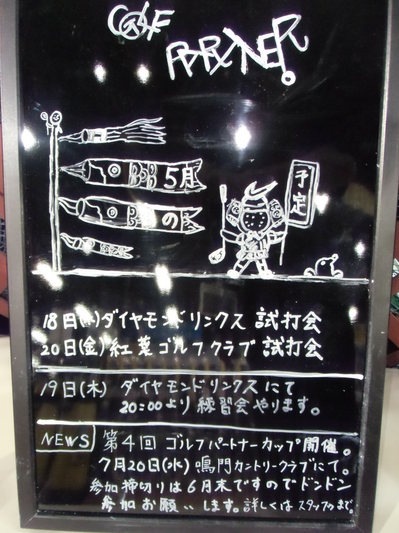 GOLF
PARTNER.
5月
の
予定
18日(水)ダイヤモンドリンクス 試打会
20日(金)紅葉ゴルフクラブ 試打会
19日(木) ダイヤモンドリンクスにて
20:00より 練習会やります。
NEWS 第4回 ゴルフパートナーカップ開催。
7月20日(水) 鳴門カントリークラブにて。
参加締切りは6月末ですのでドンドン
参加お願いします。詳しくはスタッフまで。